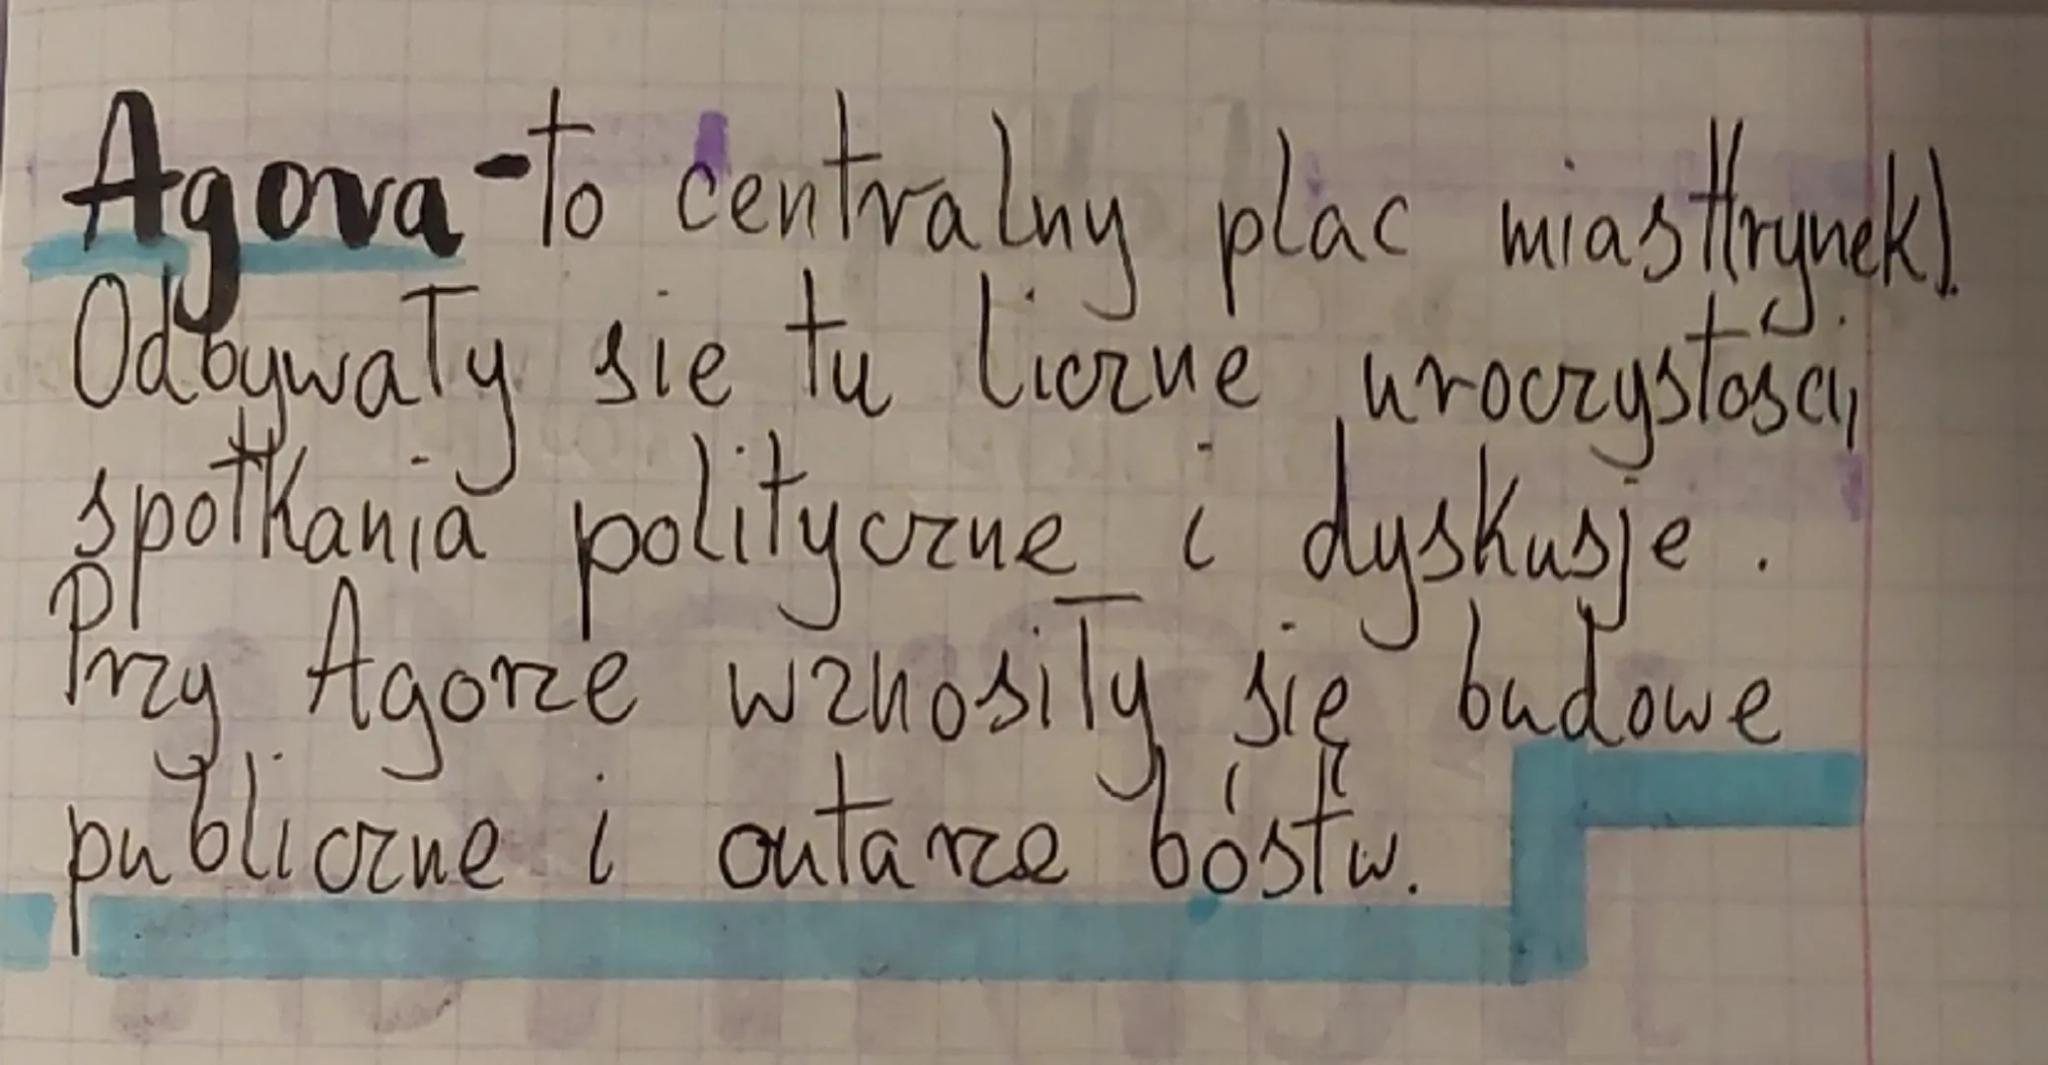 Agora - to centralny plac miast(rynek).
Odbywały się tu liczne uroczystości,
spotkania polityczne i dyskusje.
Przy Agorze wznosiły się budowe
publiczne i ołtarze bóstw.